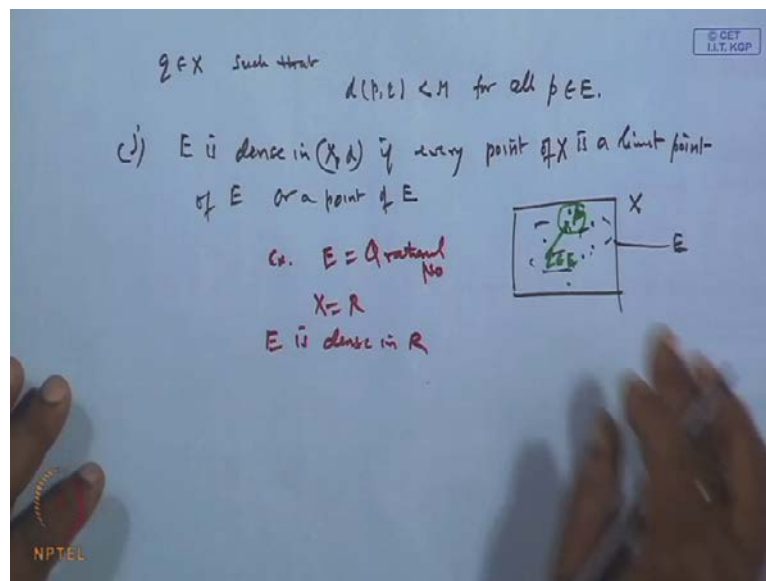 © CET
I.I.T. KGP
q ∈ X such that
d(p,q) < M for all p ∈ E.
(j) E is dense in (X,d) if every point of X is a limit point
of E or a point of E
X
E
Ex. E = Q rational
No
X = R
E is dense in R
NPTEL